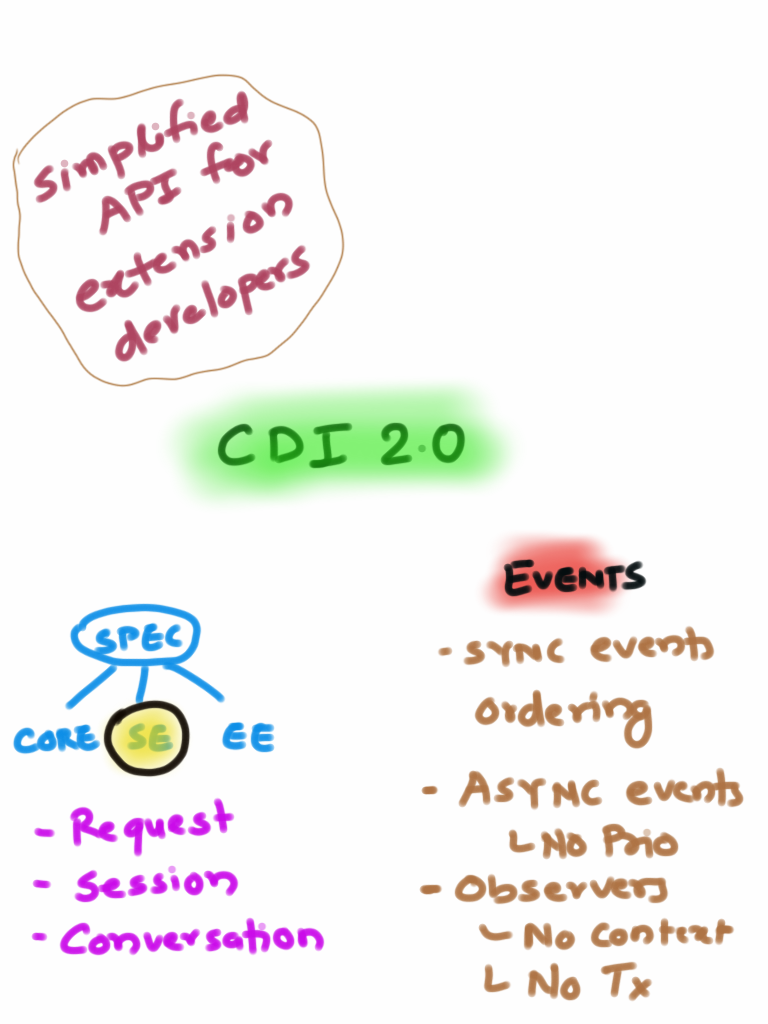 simplified
API for
extension
developers
CDI 2.0
SPEC
CORE SE EE
- Request
- Session
- Conversation
EVENTS
- SYNC events
ordering
- ASYNC events
No Prio
- Observers
No Context
No Tx